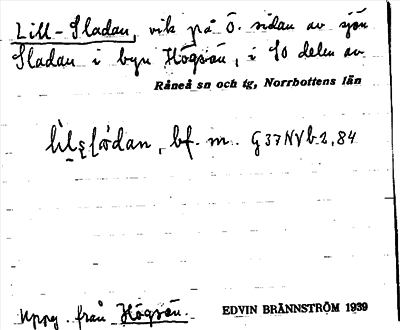 Lill-Sladan, vik på Ö. sidan av sjön
Sladan i byn Högsön, i SO delen av
Råneå sn och tg, Norrbottens län
bf. m. G37NVb2,84
Uppg. från Högsön. EDVIN BRÄNNSTRÖM 1939